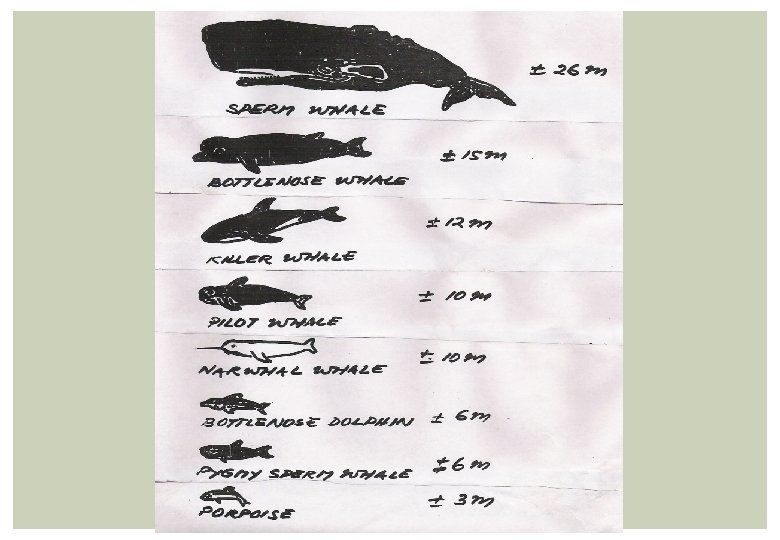 ± 26 m
SPERM WHALE
± 15 m
BOTTLENOSE WHALE
± 12 m
KILLER WHALE
± 10 m
PILOT WHALE
± 10 m
NARWHAL WHALE
± 6 m
BOTTLENOSE DOLPHIN
± 6 m
PYGMY SPERM WHALE
± 3 m
PORPOISE